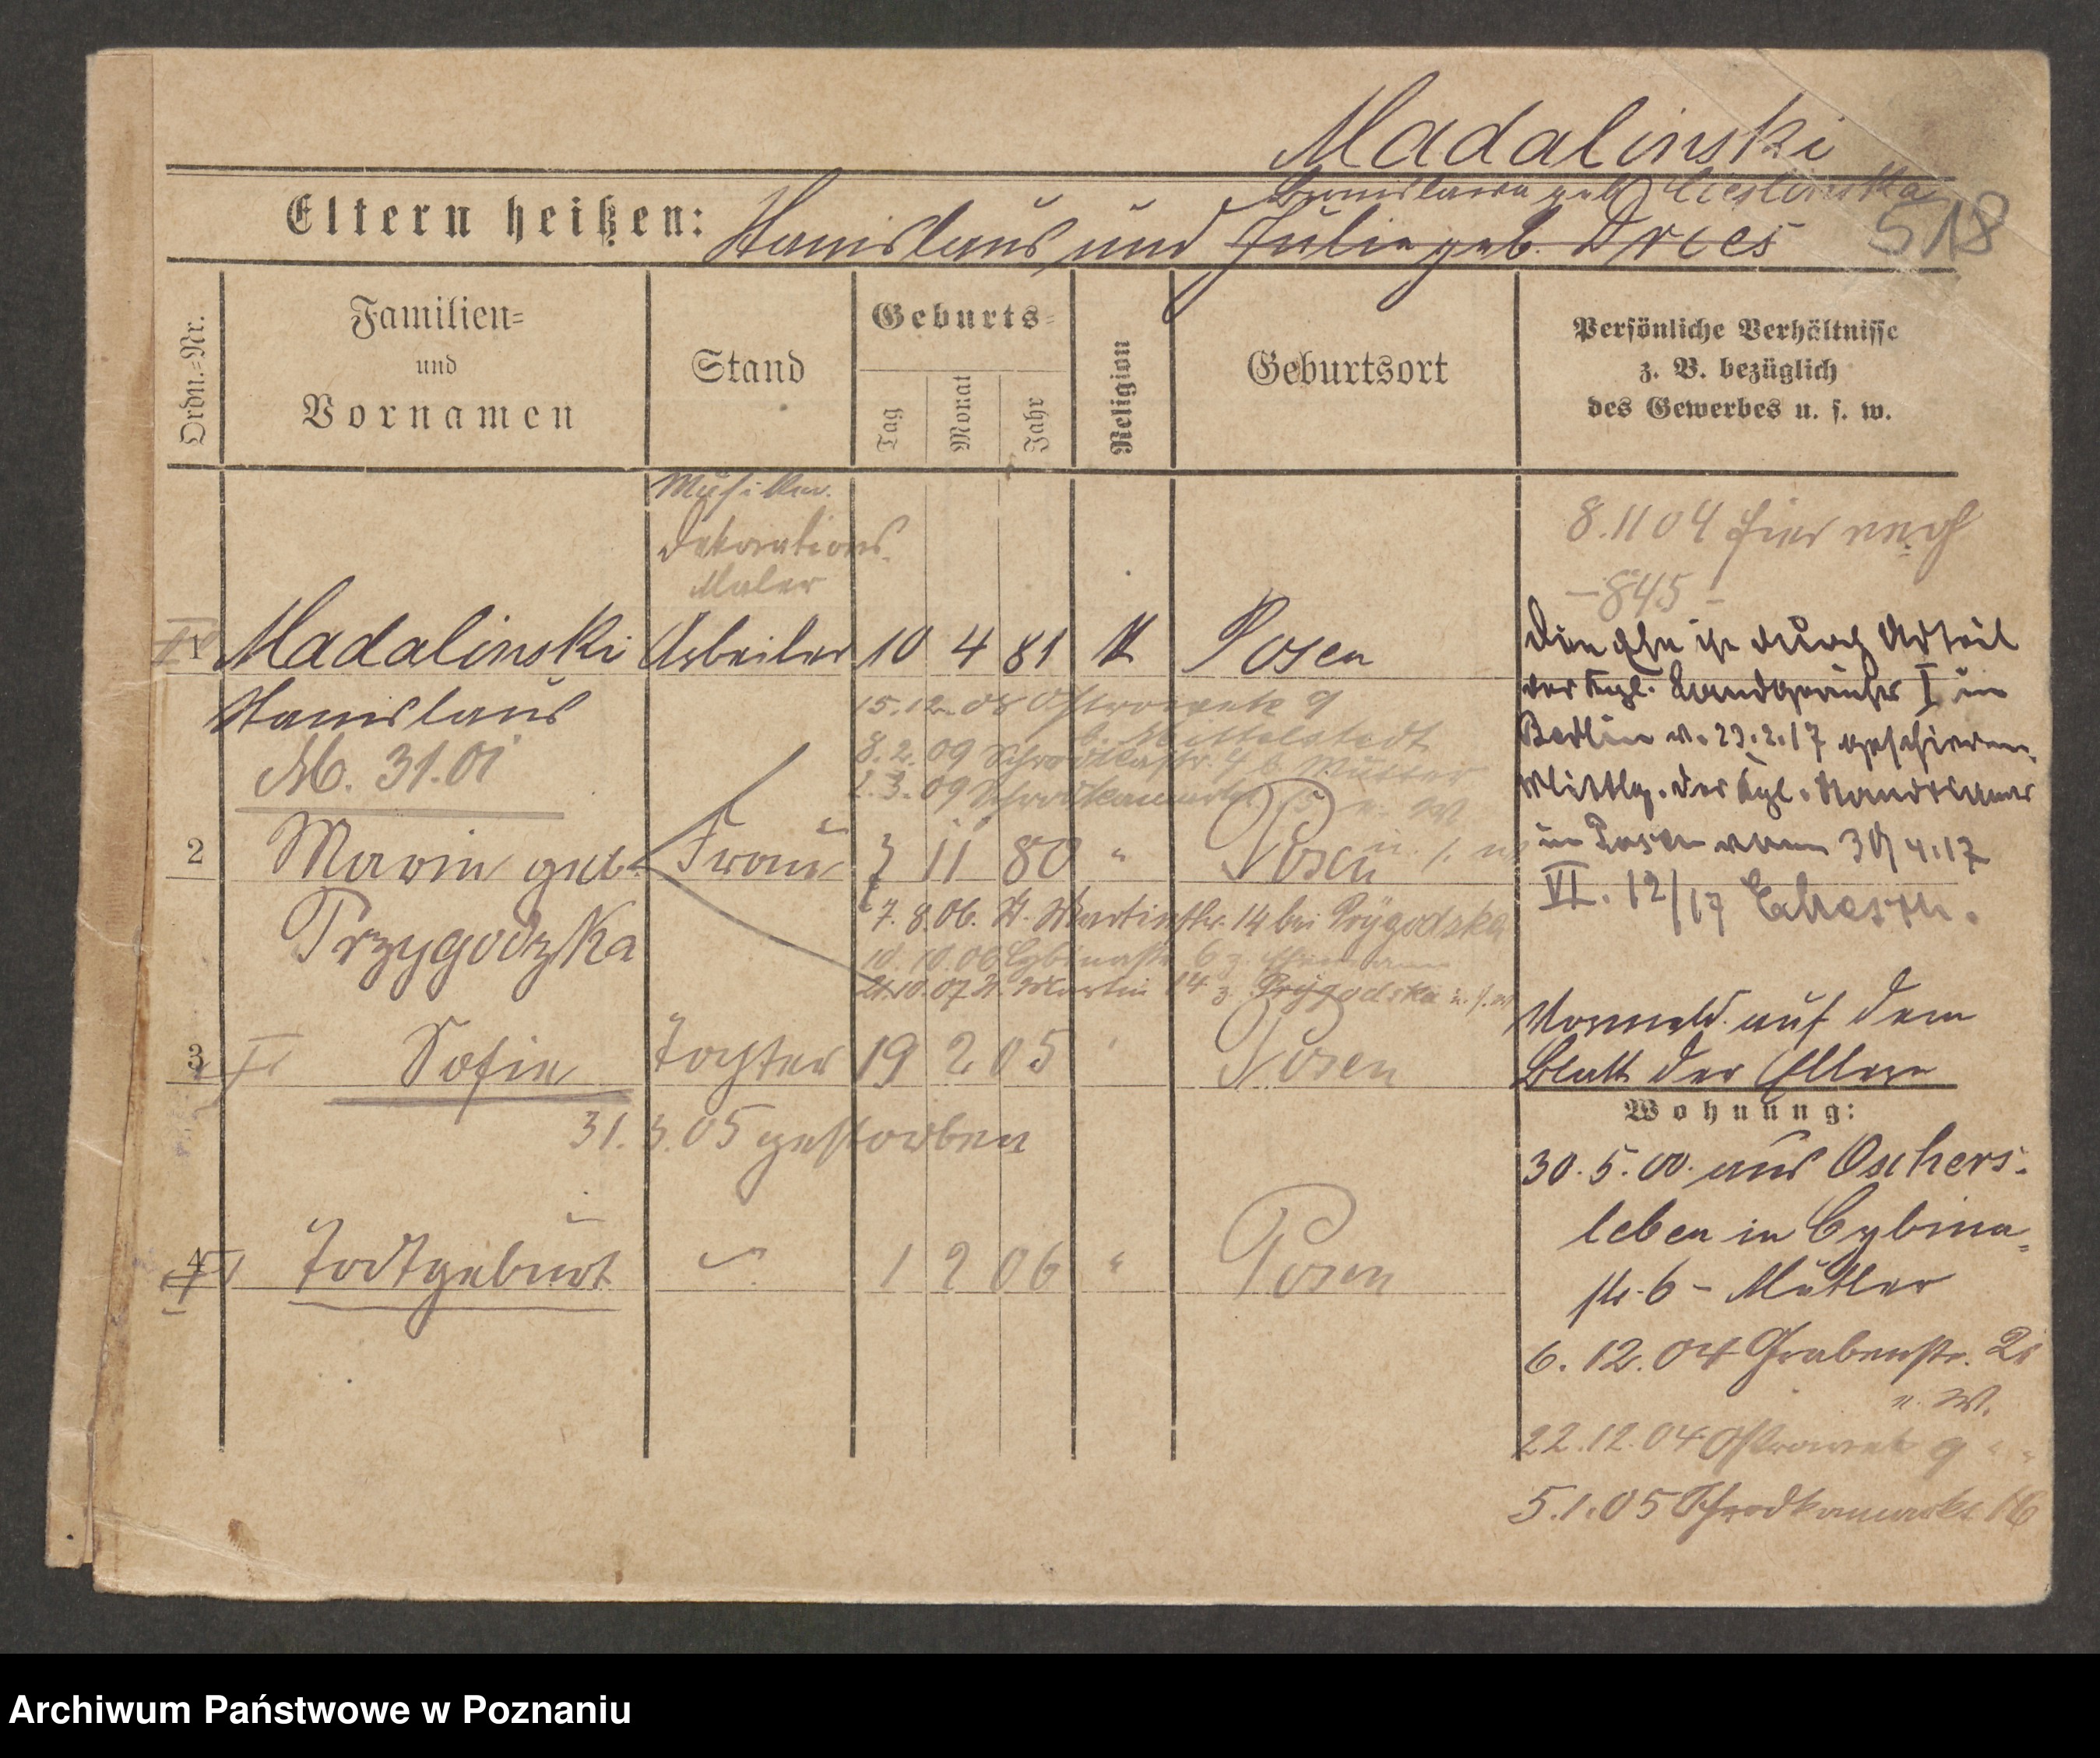 Madalinski
Bronislawa geb. Cieslinska
Eltern heißen: Stanislaus und Julie geb. Dries
518
Ordn.=Nr.
Familien=
und
Vornamen
Stand
Geburts=
Tag
Monat
Jahr
Religion
Geburtsort
Persönliche Verhältnisse
z. B. bezüglich
des Gewerbes u. s. w.
Musiker
Dekorations
Maler
8.11 04 hier
- 845 -
1 Madalinski Arbeiter 10 4 81 K Posen
Stanislaus
Die Ehe ist durch Urteil
des Kgl. Landgerichts I in
Berlin v. 23.2.17 geschieden.
Mittlg. des Kgl. Standesamts
in Posen vom 30 4.17
VI. 12/17
15.12. 08 Ostrowek 9
b. Mittelstädt
8.2.09 Schrodkastr. 4 b. Mutter
1.3.09 Schrodkamarkt
M. 31.01
2 Marie geb. Frau 7 11 80 " Posen
u. s. w.
Przygodzka
7.8.06. St. Martinstr. 14 bei Prÿgodzka
10.10.06 Cybinastr. 6
10.07 St. Martin 14 z. Prÿgodzka u. s. w
3 Sofie Tochter 19 2 05 Posen
31.3.05 gestorben
Vormeld. auf dem
Blatt der Eltern
Wohnung:
30.5.00. aus Oschers-
leben in Cybina-
str. 6 - Mutter
4 Todtgeburt 1 2 06 " Posen
6.12.04 Grabenstr. 21
u. W.
22.12.04 Ostrowek 9 " "
5.1.05 Schrodkamarkt 16
Archiwum Państwowe w Poznaniu